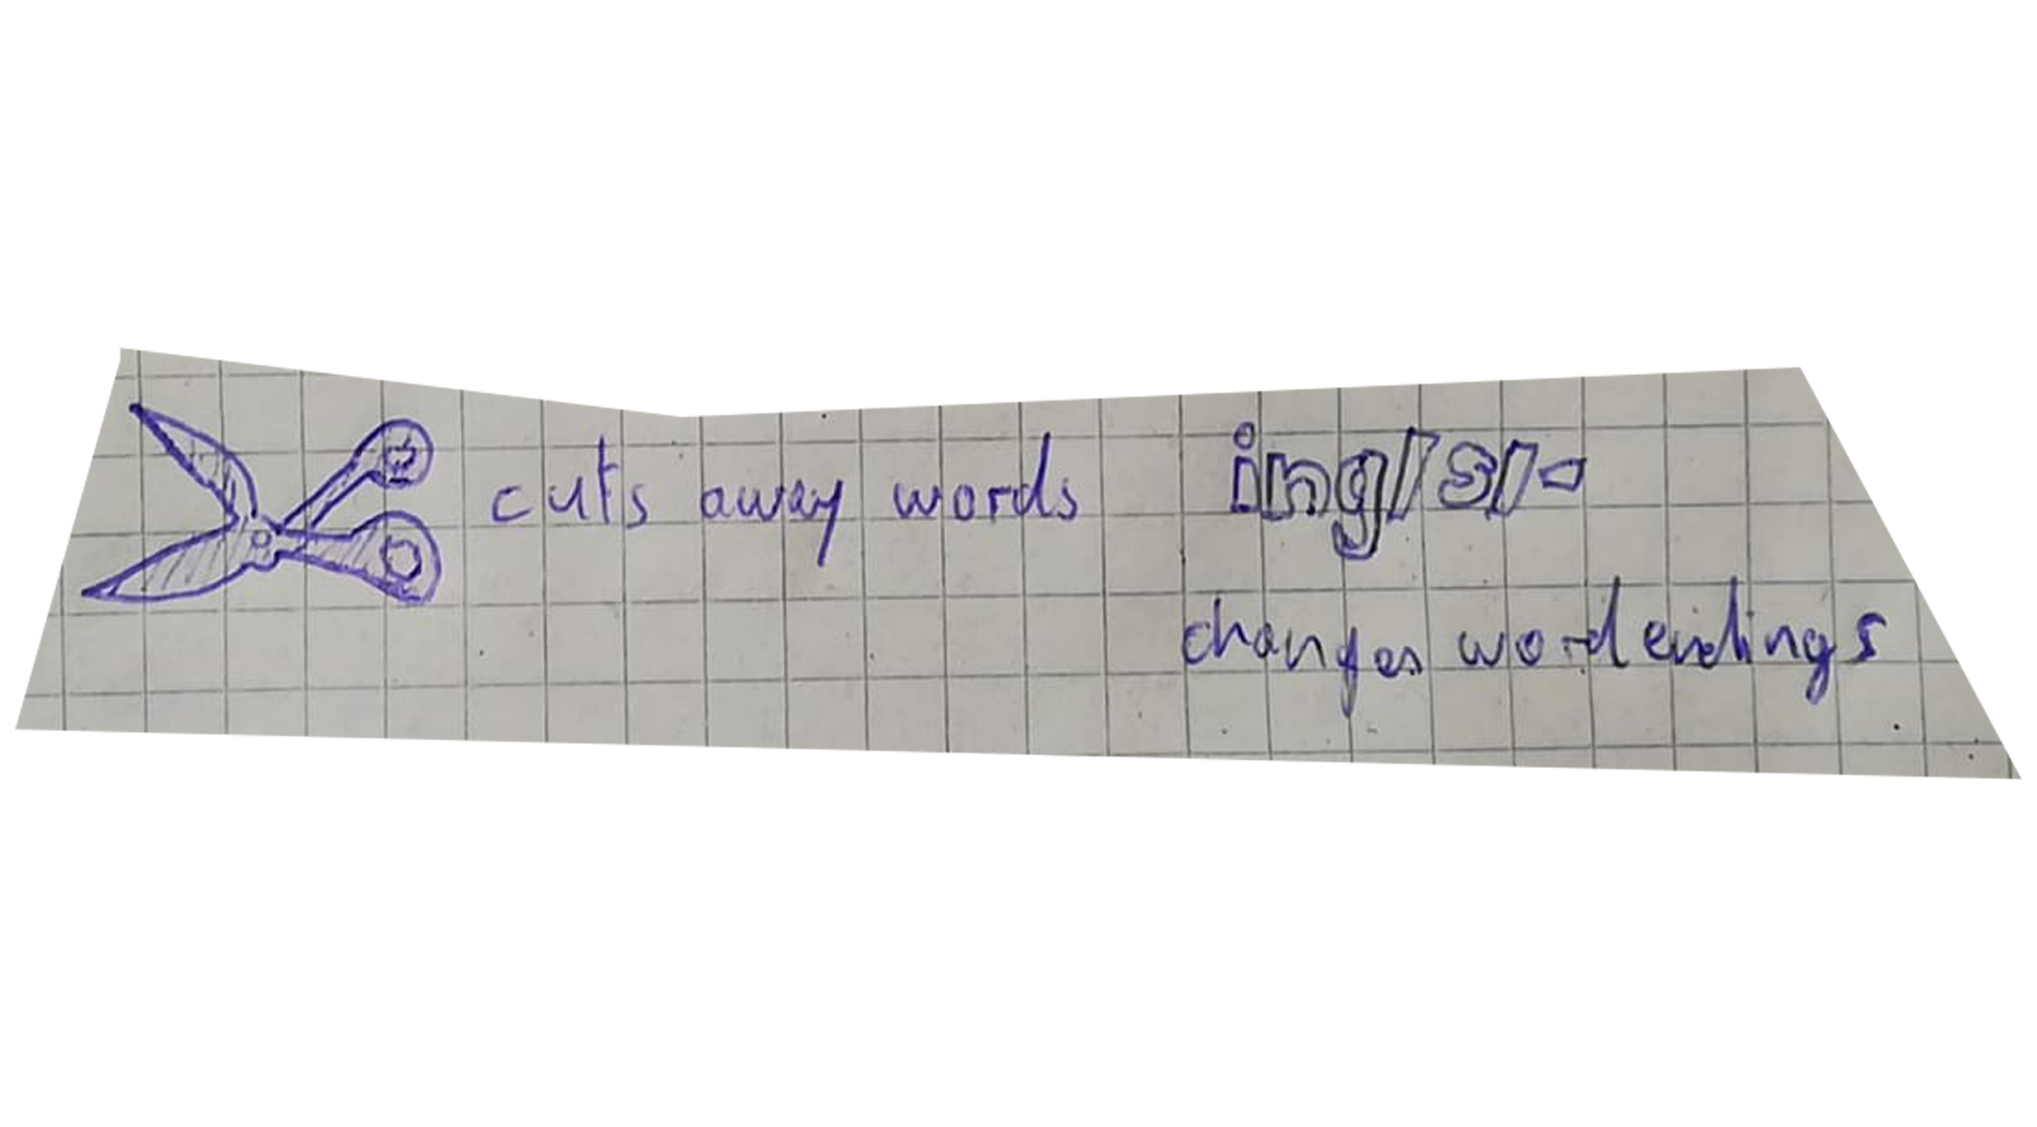 cuts away words
ing/s/-
changes wordendings